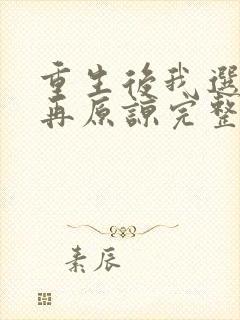 重生後我選
再原諒完整
素辰